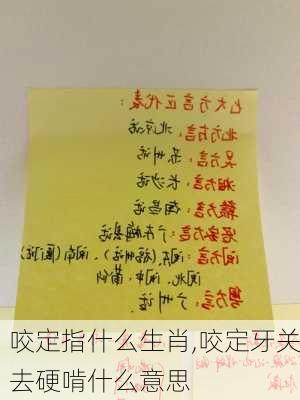 七大方言区代表:
北方方言:北京话
吴方言:苏州话
湘方言:长沙话
赣方言:南昌话
客家方言:广东梅县话
闽方言:闽东(福州话)、闽南(厦门话)
闽北、闽中、莆仙
粤方言:广州话
咬定指什么生肖,咬定牙关
去硬啃什么意思